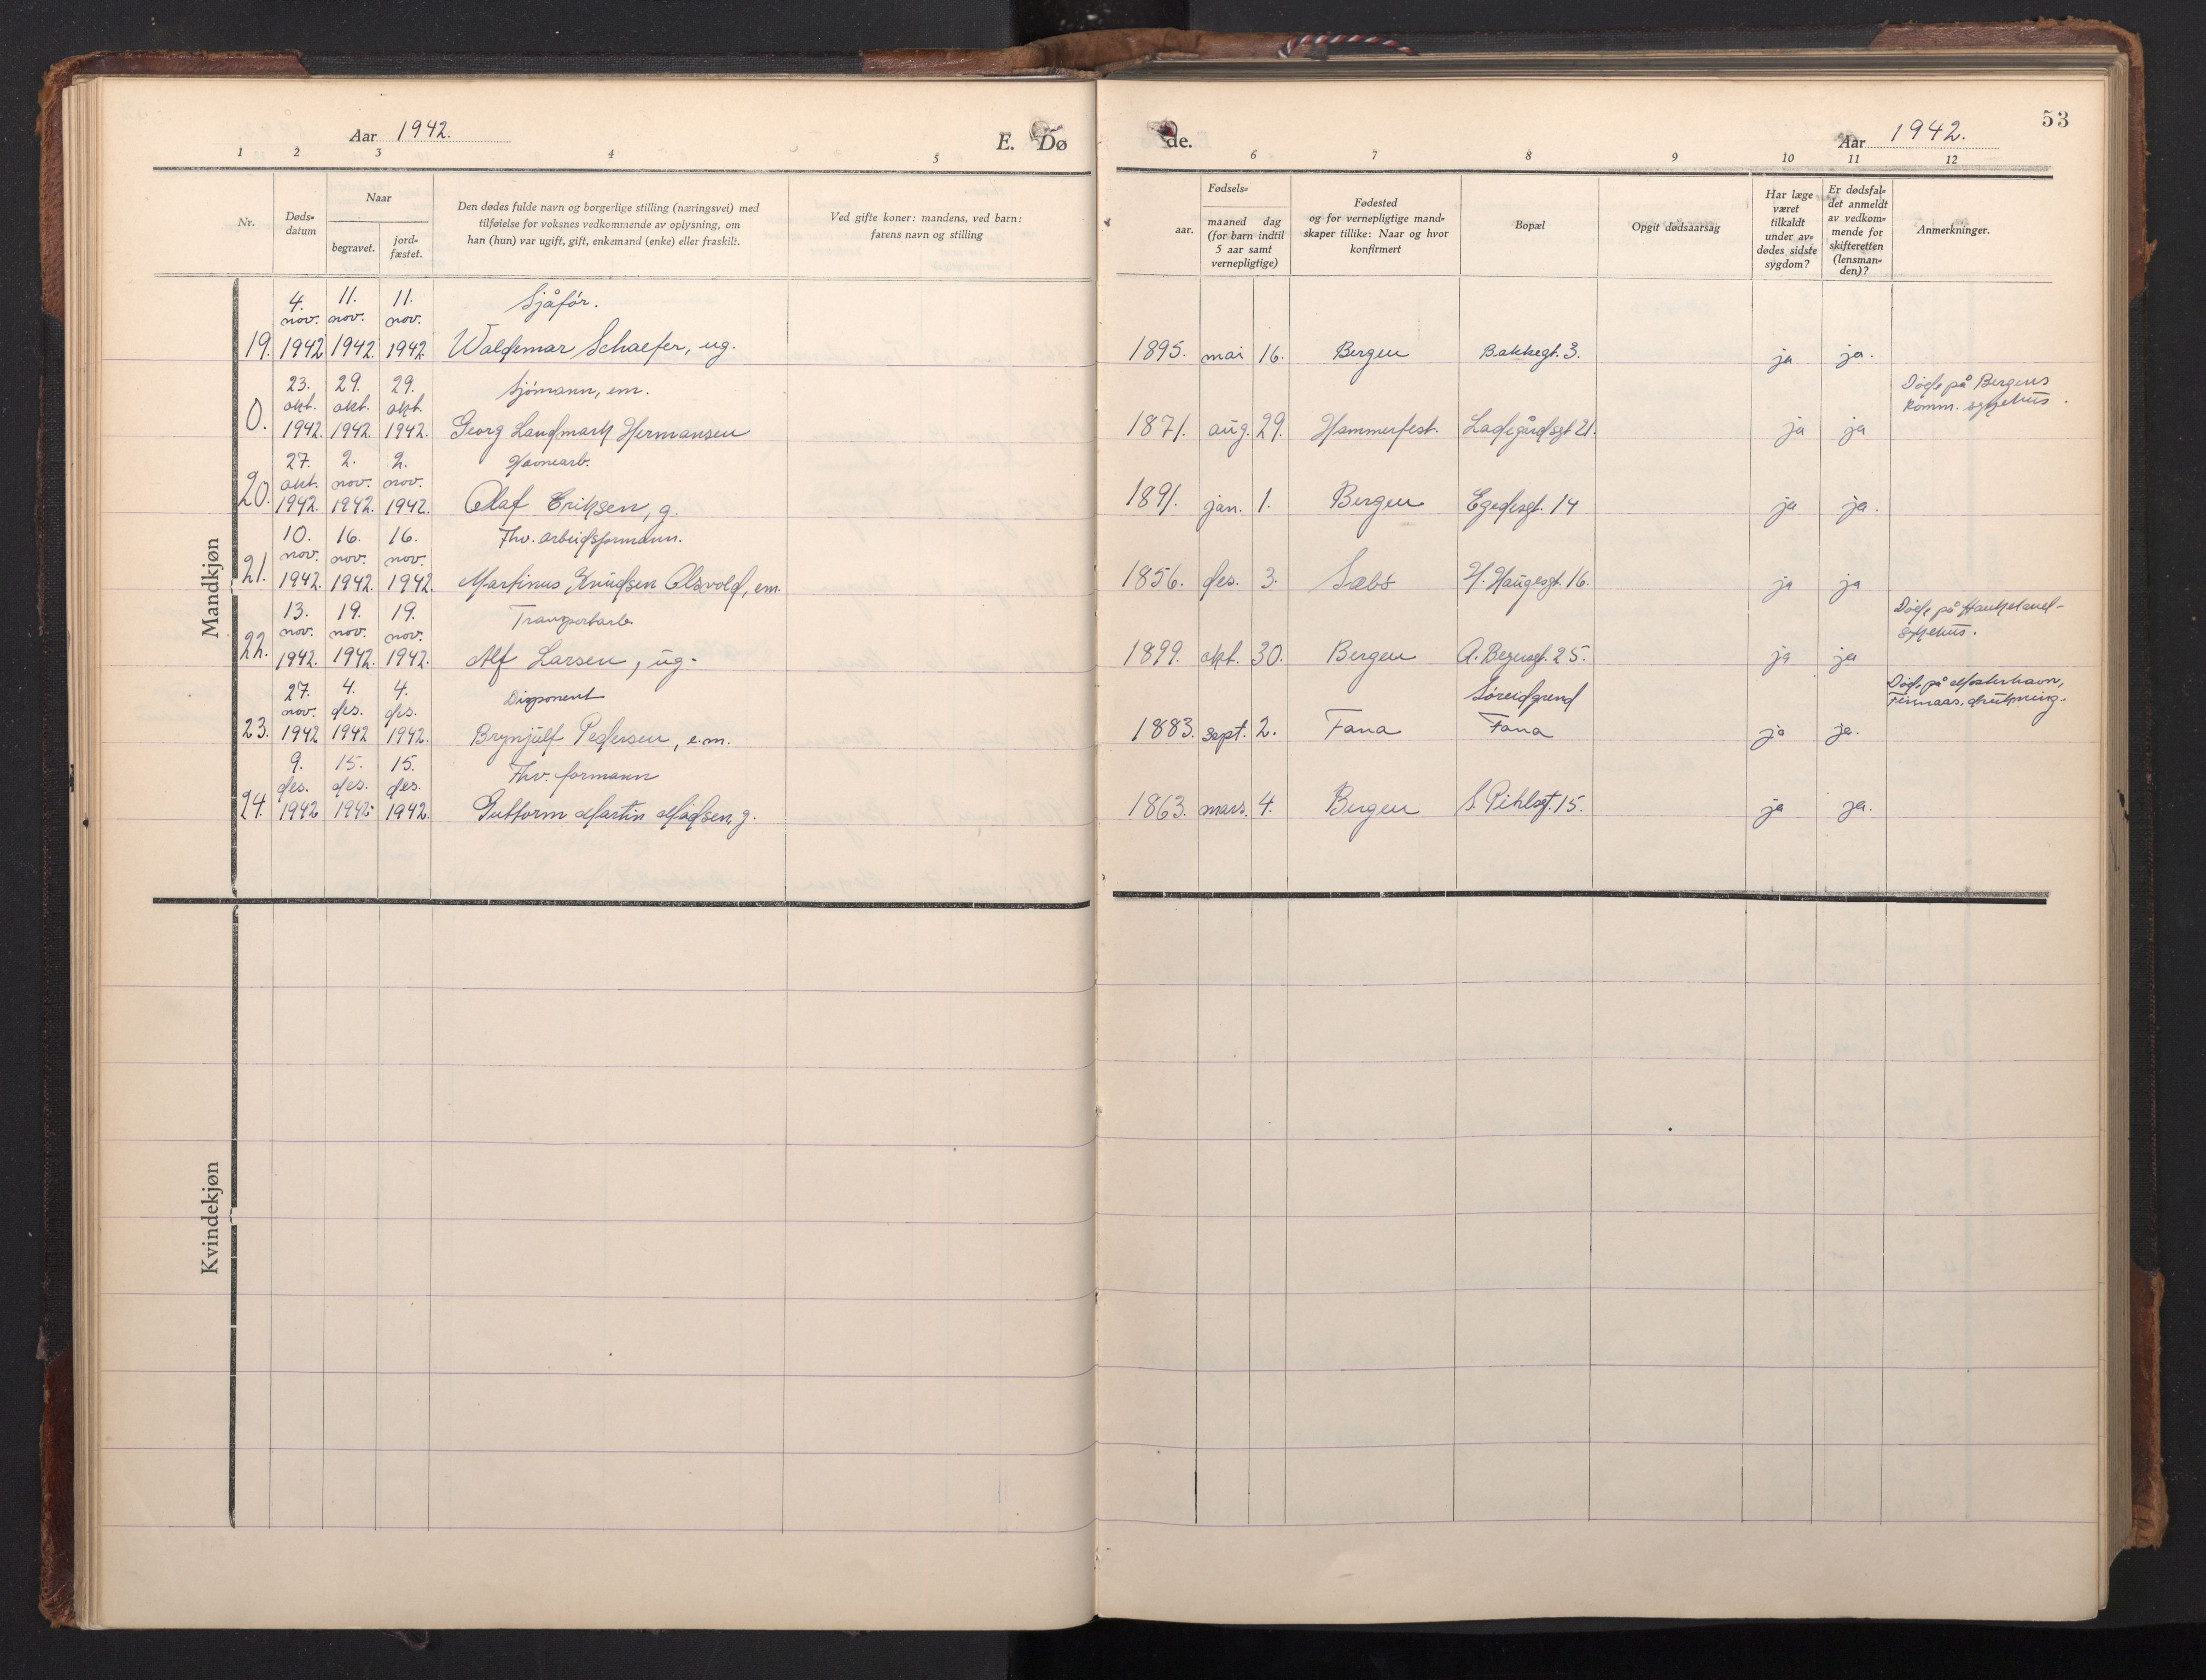 Aar 1942.
E. Dø
de.
Aar 1942.
53
1 2 3 4 5 6 7 8 9 10 11 12
Nr.
Døds-
datum
Naar
begravet.
jord-
fæstet.
Den dødes fulde navn og borgerlige stilling (næringsvei) med
tilføielse for voksnes vedkommende av oplysning, om
han (hun) var ugift, gift, enkemand (enke) eller fraskilt.
Ved gifte koner: mandens, ved barn:
farens navn og stilling
Fødsels-
aar.
maaned dag
(for barn indtil
5 aar samt
vernepligtige)
Fødested
og for vernepligtige mand-
skaper tillike: Naar og hvor
konfirmert
Bopæl
Opgit dødsaarsag
Har læge
været
tilkaldt
under av-
dødes sidste
sygdom?
Er dødsfal-
det anmeldt
av vedkom-
mende for
skifteretten
(lensman-
den)?
Anmerkninger.
Mandkjøn
4. 11. 11. Sjåfór.
nov. nov. nov.
19. 1942 1942. 1942. Waldemar Schaefer, ug. 1895. mai 16. Bergen Bakkegt. 3. ja ja.
23. 29. 29. Sjómann, em. Död på Bergens
okt. okt. okt. komm. sykehus.
0. 1942. 1942. 1942. Georg Landmark Hermansen 1871. aug. 29. Hammerfest. Ladegårdsgt 21. ja ja
27. 2. 2. Havnearb.
okt. nov. nov.
20. 1942. 1942. 1942. Olaf Eriksen, g. 1891. jan. 1. Bergen Egedesgt. 14 ja ja.
10. 16. 16. Fhv. arbeidsformann.
nov. nov. nov.
21. 1942. 1942. 1942. Martinus Knudsen Olsvold, em. 1856. des. 3. Sæbø H. Haugesgt. 16. ja ja
13. 19. 19. Transportarb. Död på Haukeland-
nov. nov. nov. sykehus.
22. 1942. 1942. 1942. Alf Larsen, ug. 1899. okt. 30. Bergen 25. ja ja
27. 4. 4. Disponent Søreidgrend Död på Mosterhavn,
nov. des. des. Finnaas, drukning.
23. 1942 1942 1942. Brynjulf Pedersen, e.m. 1883. sept. 2. Fana Fana ja ja.
9. 15. 15. Fhv. formann
des. des. des.
24. 1942 1942 1942. Guttorm Martin Madsen, g. 1863. mars. 4. Bergen S. Pihlsgt. 15. ja ja.
Kvindekjøn